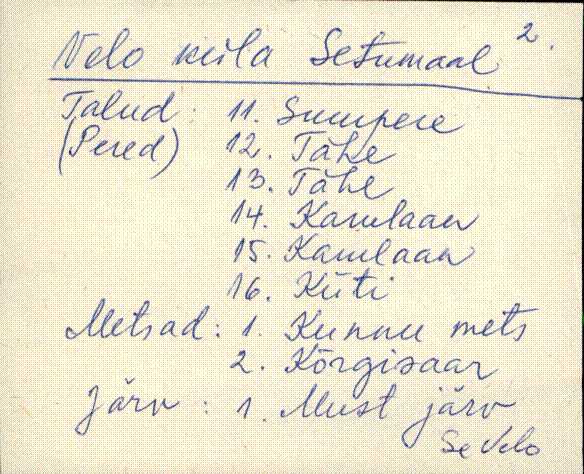 Velo küla Setumaal 2.
Talud: 11. Suurpere
(Pered) 12. Tähe
13. Tähe
14. Karulaan
15. Karulaan
16. Küti
Metsad: 1. Kunnu mets
2. Kõrgisaar
Järv: 1. Must järv
Se Velo